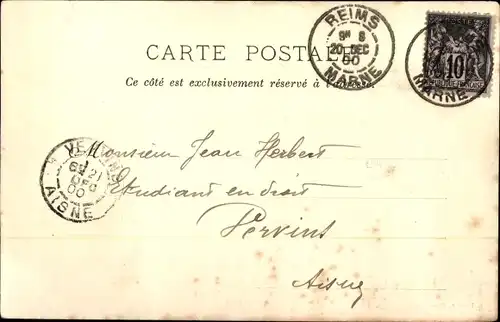 REIMS
9H S
20 DEC
00
MARNE
POSTES
10
MARNE
CARTE POSTALE
Ce côté est exclusivement réservé à l'
21
DEC
00
AISNE
Monsieur Jean Herbert
Etudiant en droit
Vervins
Aisne